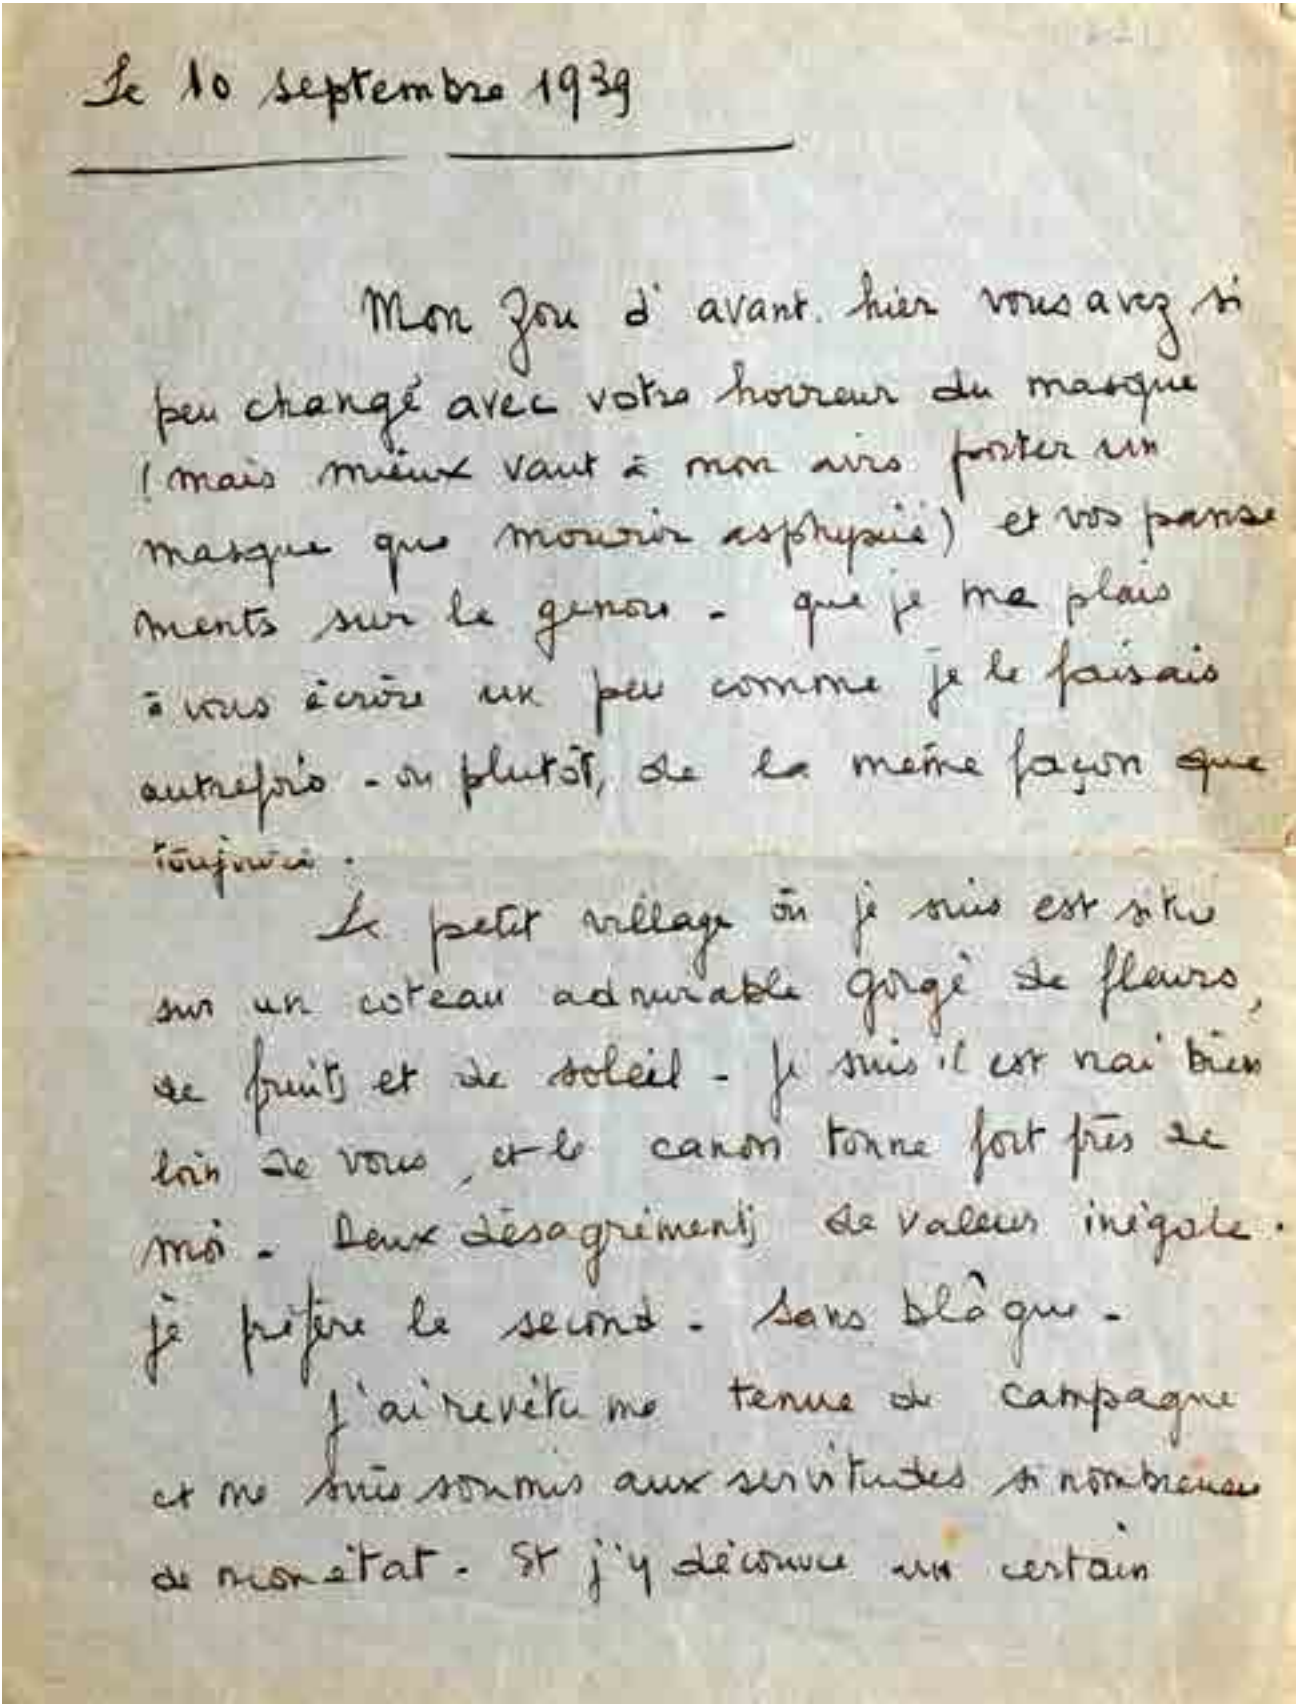 Le 10 septembre 1939
Mon Zou d'avant. hier vous avez si
peu changé avec votre horreur du masque
(mais mieux vaut à mon avis porter un
masque que mourir asphyxié) et vos panse
ments sur le genou - que je me plais
à vous écrire un peu comme je le faisais
autrefois - ou plutôt, de la même façon que
toujours.
Le petit village où je suis est situé
sur un coteau admirable gorgé de fleurs,
de fruits et de soleil - Je suis il est vrai bien
loin de vous, et le canon tonne fort près de
moi - Deux désagréments de valeur inégale.
je préfère le second - Sans blâgue -
J'ai revêtu ma tenue de campagne
et me suis soumis aux servitudes si nombreuses
de mon état - Et j'y découvre un certain